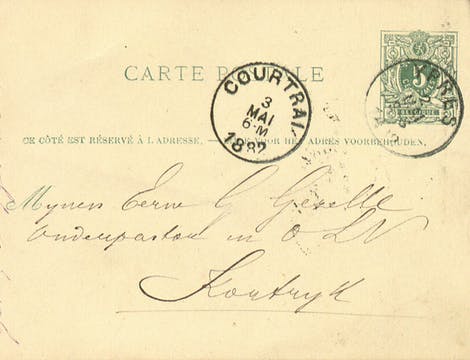 CARTE POSTALE
5
COURTRAI
3
MAI
6-M
1882
YPRES
CE CÔTÉ EST RÉSERVÉ À L'ADRESSE. — VOOR HET ADRES VOORBEHOUDEN.
Mynen Eerw G Gezelle
Onderpastor in O L V
Kortryk